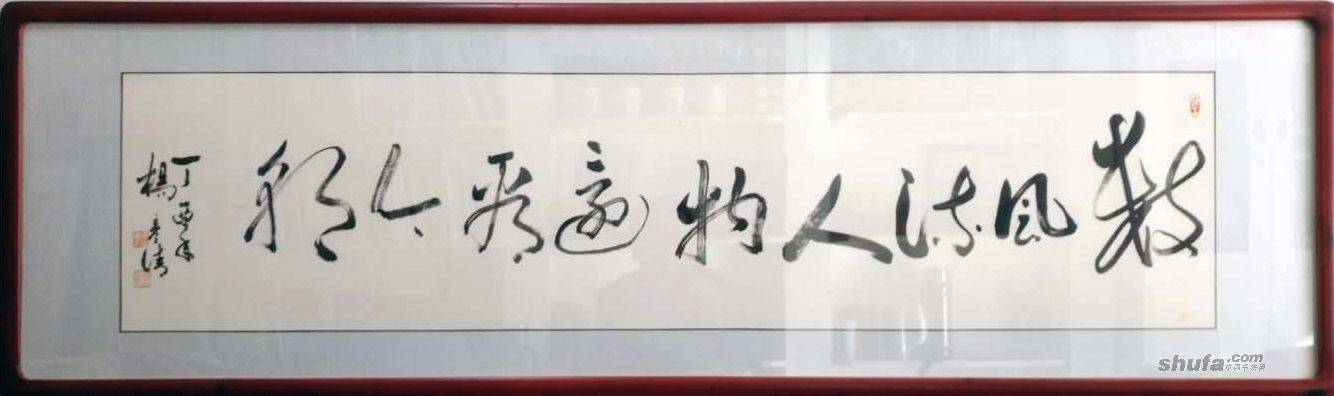 數風流人物還看今朝
丁酉年
楊
shufa.com